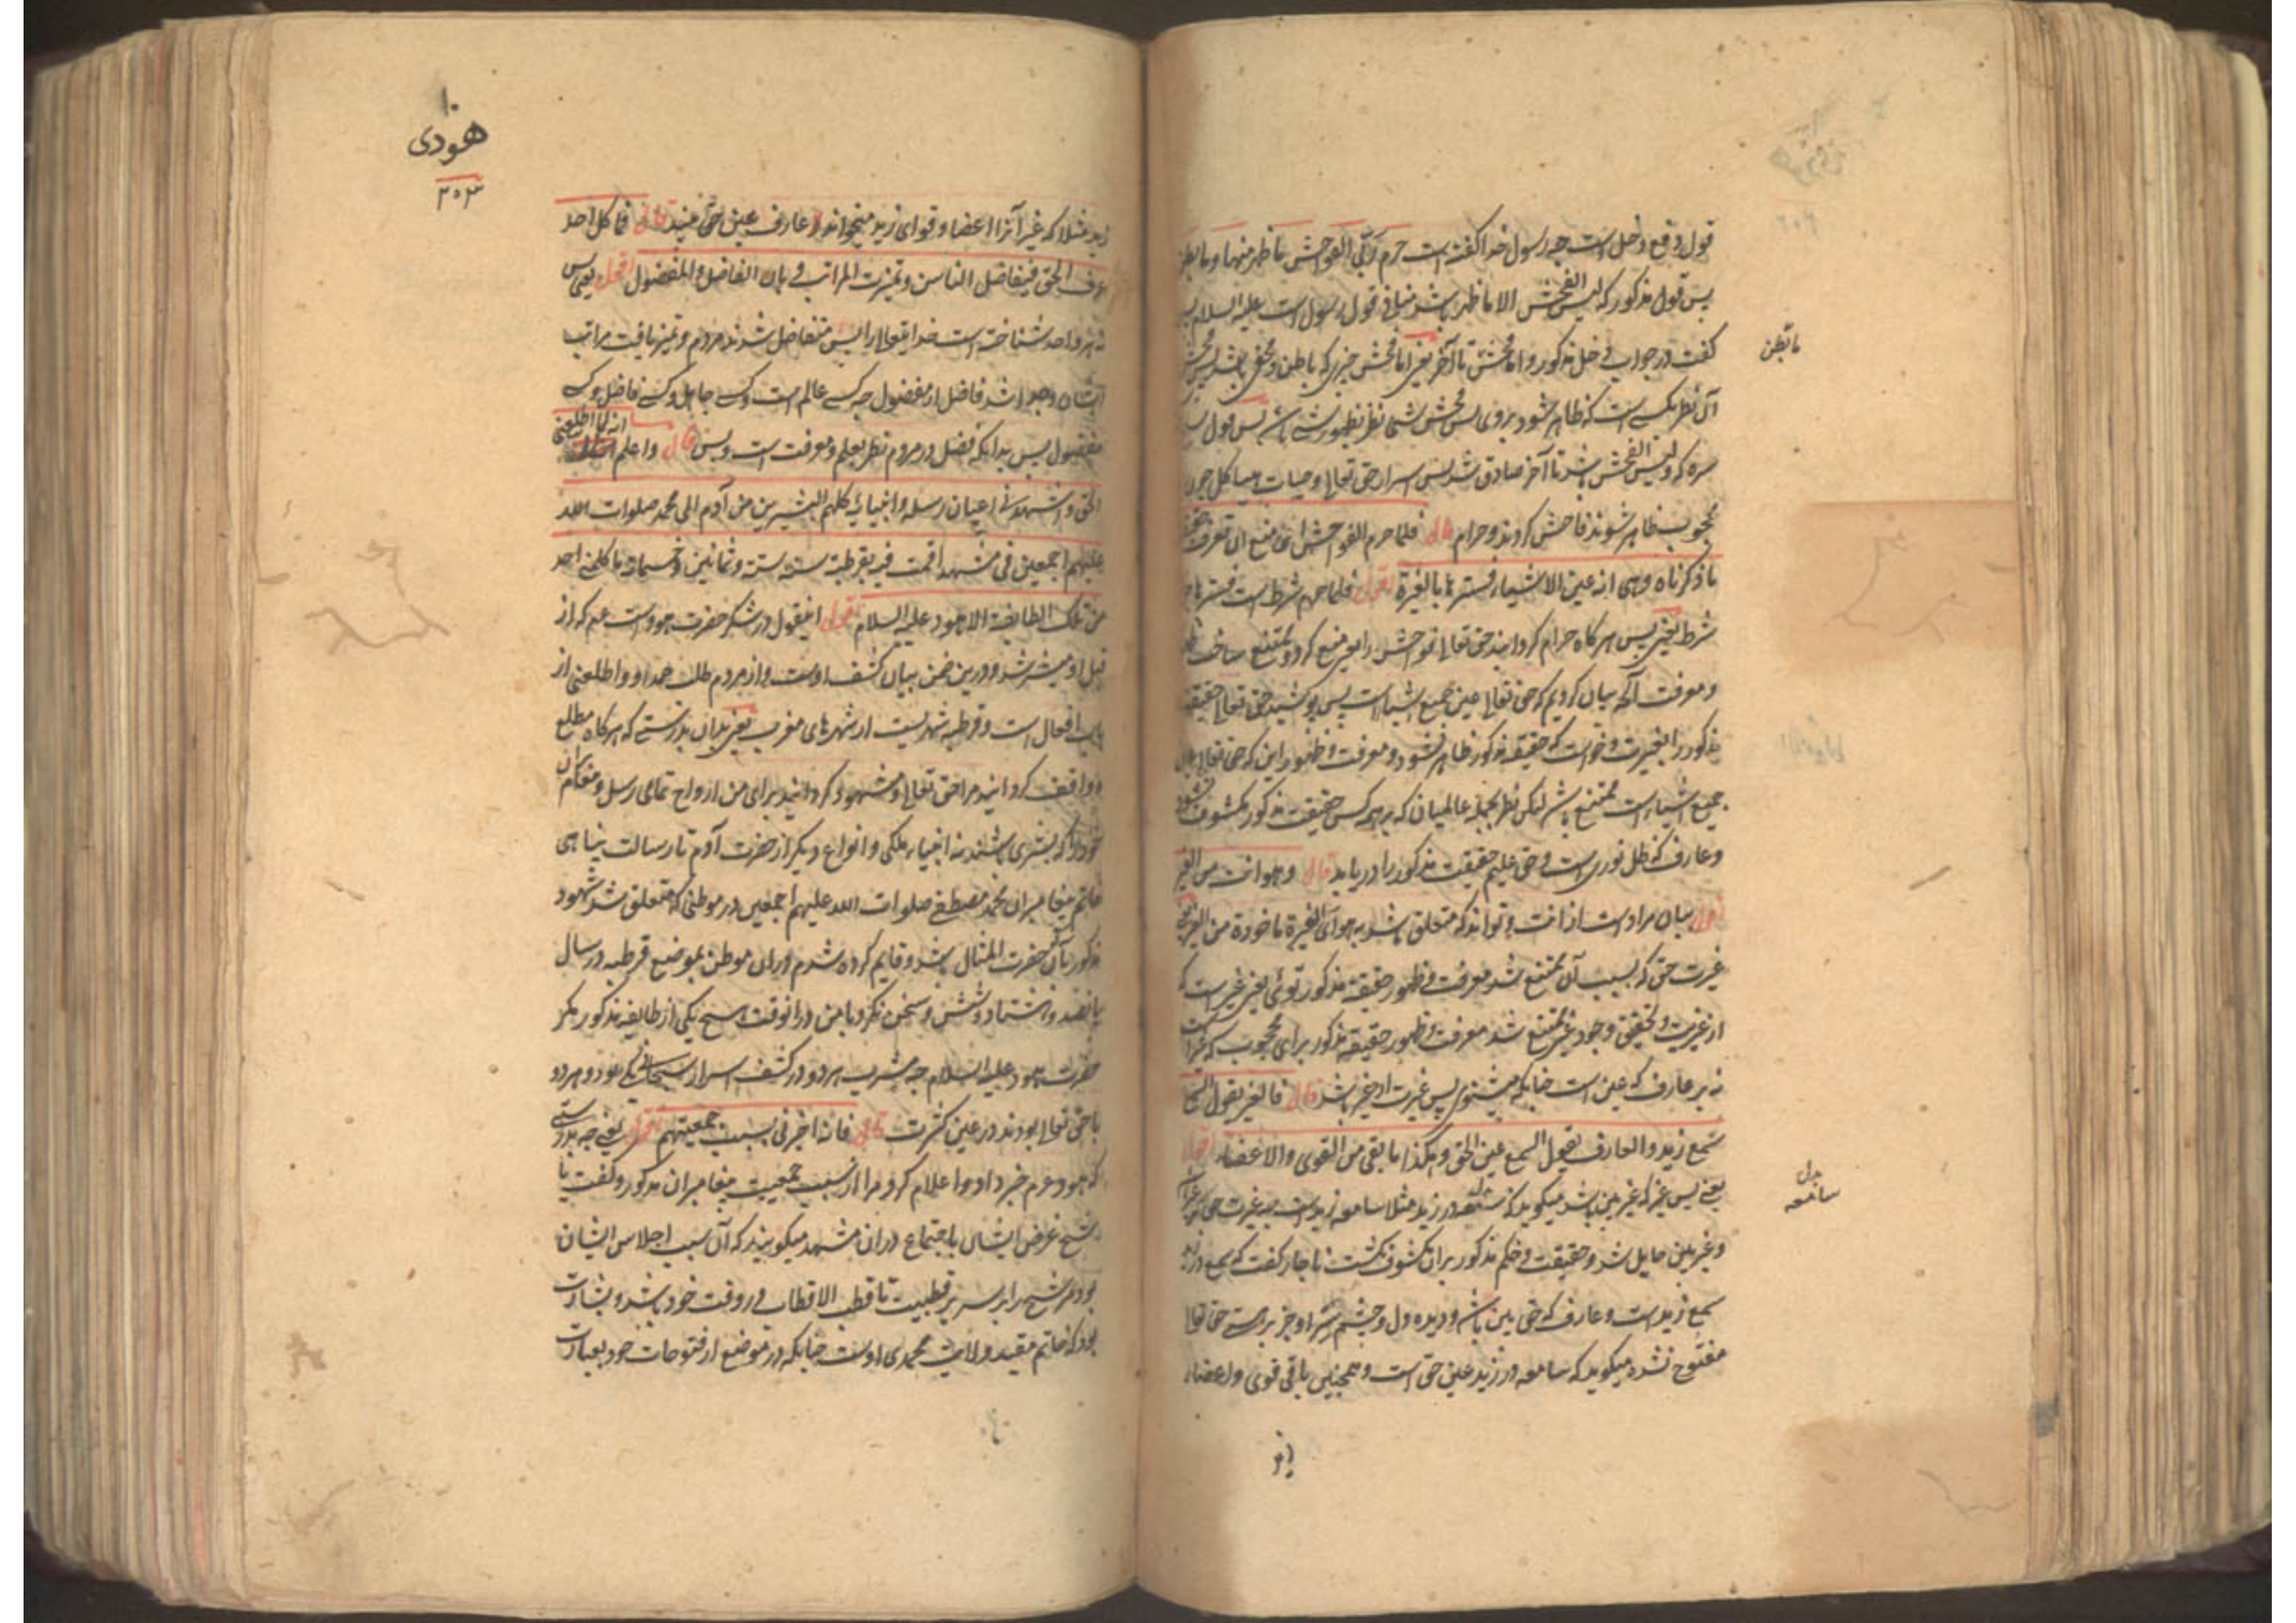 قول دفع دخل است چه رسول خدا گفته است حرم ربی الفواحش ما ظهر منها و ما بطن
پس قول مذکور که لیس الفحش الا ما ظهر باشد منافی قول رسول است علیه السلام پس
گفت در جواب دخل مذکور و اما فحش تا آخر یعنی اما فحش چیزی که باطن و مخفی باشد پس فحش
ما بطن
آن نظر بکسی است که ظاهر شود بروی پس فحش شی نظر بظهور شی باشد پس قول
سره که و لیس الفحش باشد تا آخر صادق شد پس اسرار حق تعالی و حیات هیاکل چون
محجوب ظاهر شوند فاحش گردند و حرام قال فلما حرم الفواحش ای منع ان تعرف حقیقة
ما ذکرناه وهی انه عین الاشیاء فسترها بالغیرة اقول فلما حرم شرط است فسترها جزا
شرط یعنی پس هرگاه حرام گردانید حق تعالی فواحش را یعنی منع کرد و ممتنع ساخت
و معرفت آنکه بیان کردیم که حق تعالی عین جمیع اشیا است پس پوشید حق تعالی حقیقة
مذکور را بغیرت و خواست که حقیقة مذکور ظاهر نشود و معرفت و ظهور این که حق تعالی عین
جمیع اشیاء است ممتنع باشد لیکن نظر بجمله عالمیان که بر همه کس حقیقت مذکور مکشوف نشود
و عارف که ظل نوری است و حق علیم حقیقت مذکور را دریابد قال وهو انت من الغیر
اقول بیان مراد است از انت و تواند که متعلق باشد به هو ای الغیرة ماخوذة من الغیر یعنی
غیرت حق که بسبب آن ممتنع شد معرفت و ظهور حقیقة مذکور توئی یعنی غیر است که
از غیریت و تحقیق وجود غیر ممتنع شد معرفت و ظهور حقیقة مذکور برای محجوب که غیر است
نه بر عارف که عین است چنانکه میشنوی پس غیرت از غیر باشد قال فالغیر یقول السمع
سمع زید والعارف یقول السمع عین الحق وهکذا ما بقی من القوی والاعضاء اقول
یعنی پس غیر که غیر بین باشد میگوید که در زید مثلا سامعه زید است چه غیرت حق
بدل
سامعه
و غیر بین حایل شد و حقیقت و حکم مذکور بران مکشوف نگشت ناچار گفت که سمع در زید
سمع زید است و عارف که حق بین باشد و دیده دل و چشم سر او جز بر هستی حق تعالی
مفتوح نشده میگوید که سامعه در زید عین حق است و همچنین باقی قوی و اعضاء
زید
۱۰
هودی
۳۰۳
زید مثلا که غیر آنرا اعضا و قوای زید میخواند و عارف عین حق بیند قال فما کل احد
عرف الحق فیتفاضل الناس وتمیزت المراتب فبان الفاضل والمفضول اقول یعنی پس
نه هر واحد شناخته است خدایتعالی را پس متفاضل شدند مردم و تمیز یافت مراتب
ایشان و جدا شد فاضل از مفضول چه کسی عالم است و کسی جاهل و کسی فاضل و کسی
مفضول پس بدانکه فضل در مردم نظر بعلم و معرفت است و بس قال واعلم انه لما اطلعنی
الحق واشهدنی اعیان رسله وانبیائه کلهم البشریین من آدم الی محمد صلوات الله
علیهم اجمعین فی مشهد اقمت فیه بقرطبة سنة ستة وثمانین وخمسمائة ما کلمنی احد
من تلک الطایفة الا هود علیه السلام اقول اینقول در شکر حضرت هود است عم که از
قبل او مبشر شد و درین ضمن بیان کشف اوست و از مردم طلب حمد او و اطلعنی از
باب افعال است و قرطبه شهریست از شهرهای مغرب یعنی بدان بدرستی که هرگاه مطلع
و واقف گردانید مرا حق تعالی و مشهود گردانید برای من ارواح تمامی رسل و پیغامبران
خود را که بشری باشند نه انبیاء ملکی و انواع دیگر از حضرت آدم تا رسالت پناهی
خاتم پیغامبران محمد مصطفی صلوات الله علیهم اجمعین در موطنی که متعلق شد شهود
مذکور بآن حضرت المثال باشد و قایم کرده شدم دران موطن بموضع قرطبه در سال
پانصد و هشتاد و شش و سخن نکرد با من درانوقت هیچ یکی از طایفه مذکور مگر
حضرت هود علیه السلام چه مشرب هر دو در کشف اسرار سبحانی یکی بود و هر دو
با حق تعالی بودند در عین کثرت قال فانه اخبرنی بسبب جمعیتهم اقول یعنی چه بدرستی
که هود عم خبر داد و اعلام کرد مرا از سبب جمعیت پیغامبران مذکور و گفت با
شیخ غرض ایشان باجتماع دران مشهد میگویند که آن سبب اجلاس ایشان
بود مر شیخ را بر سریر قطبیت تا قطب الاقطاب در وقت خود باشد و بشارت
بود که خاتم مقید ولایت محمدی اوست چنانکه در موضع از فتوحات خود بعبارت